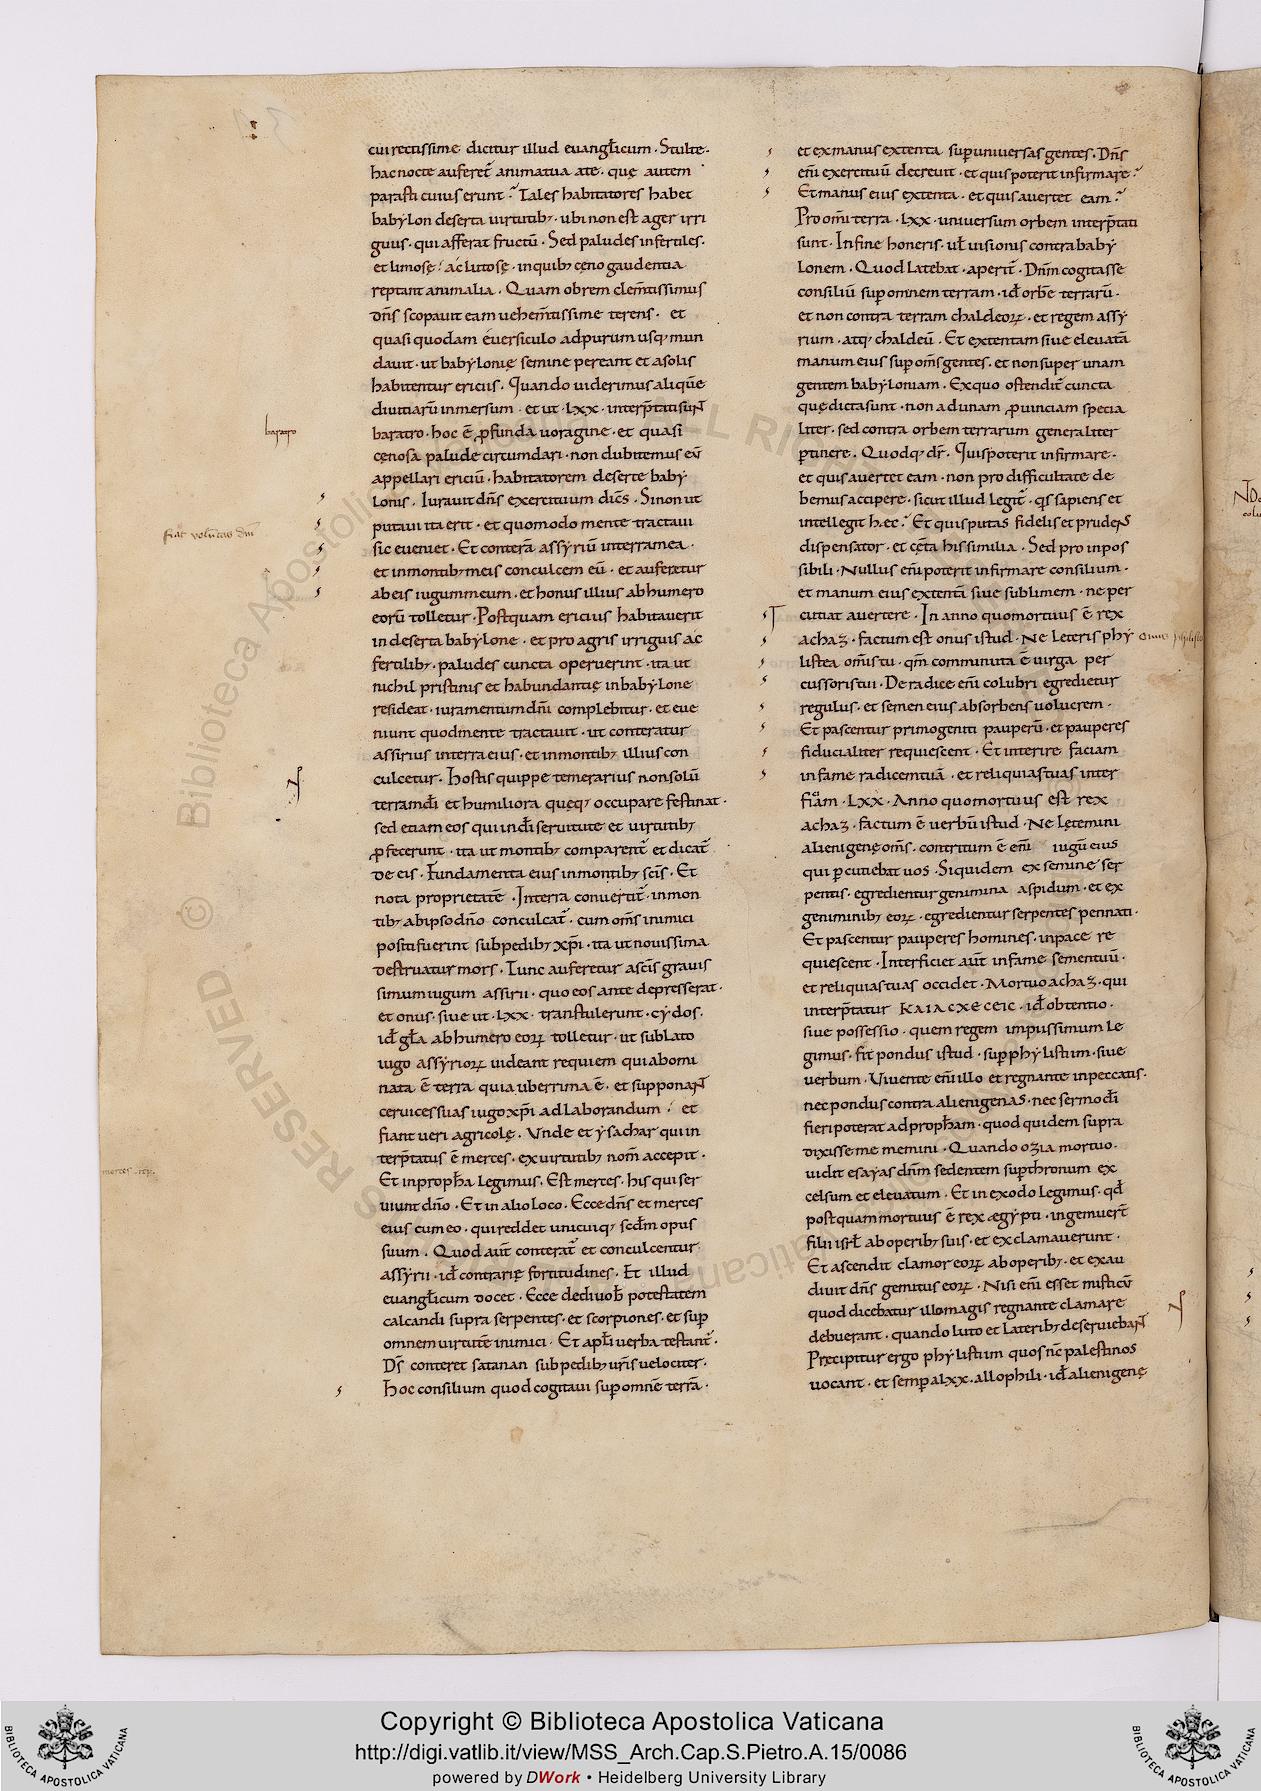 cui rectissime dicitur illud euangl̄icum · Stulte ·
hac nocte auferet̄ anima tua a te · quę autem
parasti cuius erunt? Tales habitatores habet
babylon deserta uirtutib; · ubi non est ager irri
guus · qui afferat fructū · Sed paludes infertiles ·
et limosę · ac lutosę · in quib; cęno gaudentia
reptant animalia · Quam obrem clem̄tissimus
dn̄s scopauit eam uehem̄tissime terens · et
quasi quodam euersiculo ad purum usq; mun
dauit · ut babylonię semine pereant et a solis
habitentur ericiis · Quando uiderimus aliquē
diuitiarū inmersum · et ut · lxx · interp̄tati sunt
baratro · hoc ē ꝓfunda uoragine · et quasi
cęnosa palude circumdari · non dubitemus eū
appellari ericiū · habitatorem deserte baby
lonis · Iurauit dn̄s exercituum dicēs · Si non ut
putaui ita erit · et quomodo mente tractaui
sic eueniet · Et conterā assyriū in terra mea ·
et in montib; meis conculcem eū · et auferetur
ab eis iugum meum · et honus illius ab humero
eorū tolletur · Postquam ericius habitauerit
in deserta babylone · et pro agris irriguis ac
fertilib; · paludes cuncta operuerint · ita ut
nichil pristinis et habundantię in babylone
resideat · iuramentum dn̄i complebitur · et eue
niunt quod mente tractauit · ut conteratur
assirius in terra eius · et in montib; illius con
culcetur · Hostis quippe temerarius non solū
terram dī et humiliora quęq; occupare festinat ·
sed etiam eos qui in dī seruitute et uirtutib;
ꝓfecerunt · ita ut montib; comparent̄ et dicat̄
de eis · Fundamenta eius in montib; scīs · Et
nota proprietatē · In terra conuertit̄ · in mon
tib; ab ipso dn̄o conculcat̄ · cum om̄s inimici
positi fuerint sub pedib; xp̄i · ita ut nouissima
destruatur mors · Tunc auferetur a scīs grauis
simum iugum assirii · quo eos ante depresserat ·
et onus · siue ut · lxx · transtulerunt · cydos ·
id̄ gl̄a ab humero eoꝝ tolletur · ut sublato
iugo assyrioꝝ uideant requiem qui abomi
nata ē terra quia uberrima ē · et supponant
ceruices suas iugo xp̄i ad laborandum · et
fiant ueri agricolę · Vnde et ysachar qui in
terp̄tatus ē merces · ex uirtutib; nom̄ accepit ·
Et in proph̄a legimus · Est merces · his qui ser
uiunt dn̄o · Et in alio loco · Ecce dn̄s et merces
eius cum eo · qui reddet unicuiq; scd̄m opus
suum · Quod aut̄ conterat̄ et conculcentur
assyrii · id̄ contrarię fortitudines · Et illud
euangl̄icum docet · Ecce dedi uob̄ potestatem
calcandi supra serpentes · et scorpiones · et sup̄
omnem uirtutē inimici · Et apl̄i uerba testant̄ ·
Ds̄ conteret satanan sub pedib; uris̄ uelociter ·
Hoc consilium quod cogitaui sup̄ omnē terrā ·
baratro
fiat volūtas dn̄i
merces
et ex manus extenta sup̄ uniuersas gentes · Dn̄s
eni̅ exercituū decreuit · et quis poterit infirmare?
Et manus eius extenta · et quis auertet eam?
Pro om̄i terra · lxx · uniuersum orbem interp̄tati
sunt · In fine honeris · ul̄ uisionis contra baby
lonem · Quod latebat · aperit̄ · Dn̄m cogitasse
consiliū sup̄ omnem terram · id̄ orbē terrarū ·
et non contra terram chaldeoꝝ · et regem assy
rium · atq; chaldeū · Et extentam siue eleuatā
manum eius sup̄ om̄s gentes · et non super unam
gentem babyloniam · Ex quo ostendit̄ cuncta
quę dicta sunt · non ad unam ꝓuinciam specia
liter · sed contra orbem terrarum generaliter
ꝑtinere · Quodq; dr̄ · Quis poterit infirmare ·
et quis auertet eam · non pro difficultate de
bemus accipere · sicut illud legit̄ · qs̄ sapiens et
intellegit hęc? Et quis putas fidelis et prudens
dispensator · et cęta his similia · Sed pro inpos
sibili · Nullus eni̅ poterit infirmare consilium ·
et manum eius extentā siue sublimem · ne per
cutiat auertere · In anno quo mortuus ē rex
achaz · factum est onus istud · Ne leteris phy
listea om̄is tu · qm̄ comminuta ē uirga per
cussoris tui · De radice eni̅ colubri egredietur
regulus · et semen eius absorbens uolucrem ·
Et pascentur primogeniti pauperū · et pauperes
fiducialiter requiescent · Et interire faciam
in fame radicem tuā · et reliquias tuas inter
ficiam · LXX · Anno quo mortuus est rex
achaz · factum ē uerbū istud · Ne lętemini
alienigenę om̄s · contritum ē eni̅ iugū eius
qui ꝑcutiebat uos · Siquidem ex semine ser
pentis · egredientur genimina aspidum · et ex
geniminib; eoꝝ · egredientur serpentes pennati ·
Et pascentur pauperes homines · in pace re
quiescent · Interficiet aut̄ in fame sementiuū ·
et reliquias tuas occidet · Mortuo achaz · qui
interp̄tatur ΚΑΙΑCΧΕCΕΙC · id̄ obtentio ·
siue possessio · quem regem impiissimum le
gimus · fit pondus istud · sup̄ phylistiim · siue
uerbum · Viuente eni̅ illo et regnante in peccatis ·
nec pondus contra alienigenas · nec sermo dī
fieri poterat ad proph̄am · quod quidem supra
dixisse me memini · Quando ozia mortuo ·
uidit esayas dn̄m sedentem sup̄ thronum ex
celsum et eleuatum · Et in exodo legimus · qd̄
postquam mortuus ē rex ægypti · ingemuer̄t
filii isrl̄ ab operib; suis · et exclamauerunt ·
Et ascendit clamor eoꝝ ab operib; · et exau
diuit dn̄s gemitus eoꝝ · Nisi eni̅ esset misticū
quod dicebatur illo magis regnante clamare
debuerant · quando luto et laterib; deseruiebant
Precipitur ergo phylistiim quos nc̄ palestinos
uocant · et semp̄ a lxx · allophili · id̄ alienigenę
onus